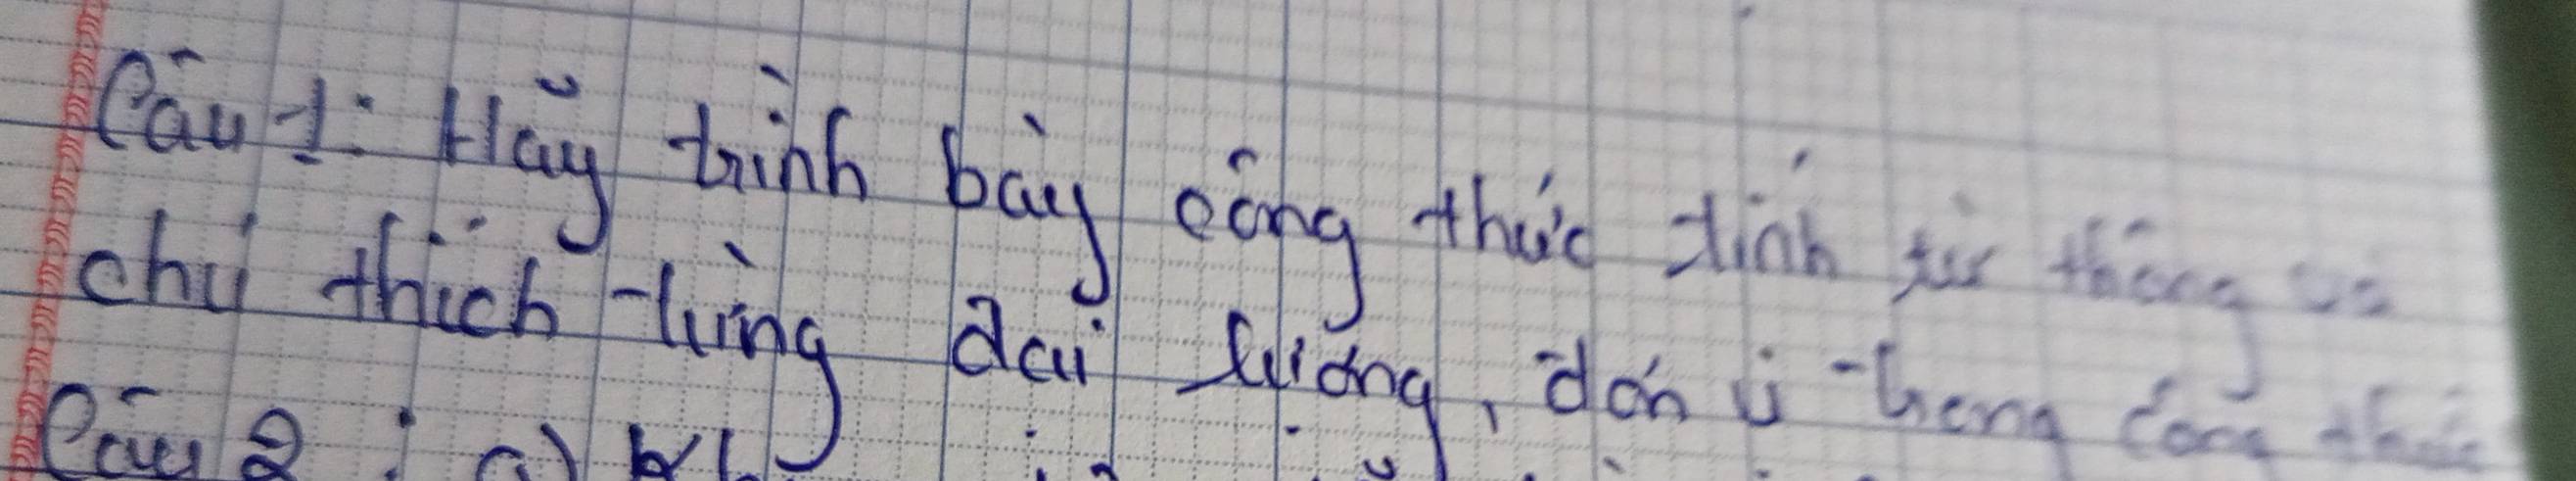 Câu 1: Hãy trình bày công thức tính từ thông và
chú thích từng đại lượng, đơn vị trong công thức
Câu 2: a)